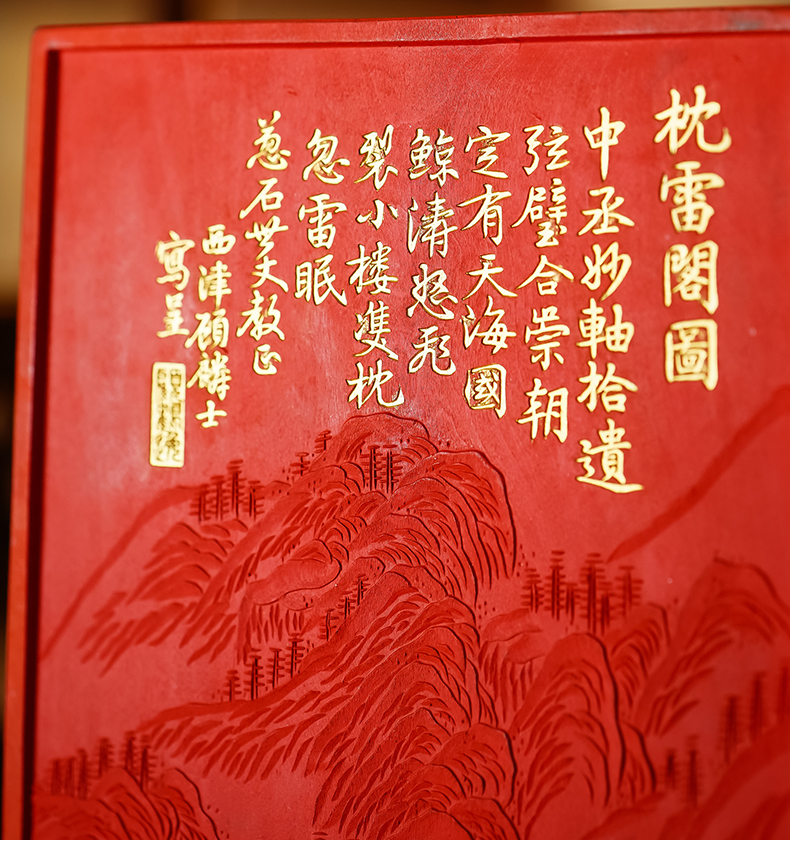 枕雷閣圖
中丞妙軸拾遺
弦璧合崇朝
定有天海國
鲸濤怒飛
裂小樓雙枕
忽雷眠
蔥石世丈教正
西津顧麟士
寫呈